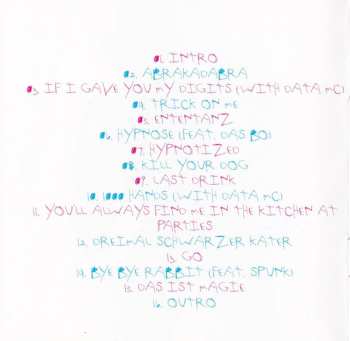 01. INTRO
02. ABRAKADABRA
03. IF I GAVE YOU MY DIGITS (WITH DATA MC)
04. TRICK ON ME
05. ENTENTANZ
06. HYPNOSE (FEAT. DAS BO)
07. HYPNOTIZED
08. KILL YOUR DOG
09. LAST DRINK
10. 1000 HANDS (WITH DATA MC)
11. YOU'LL ALWAYS FIND ME IN THE KITCHEN AT
PARTIES
12. DREIMAL SCHWARZER KATER
13. GO
14. BYE BYE RABBIT (FEAT. SPUNK)
15. DAS IST MAGIE
16. OUTRO